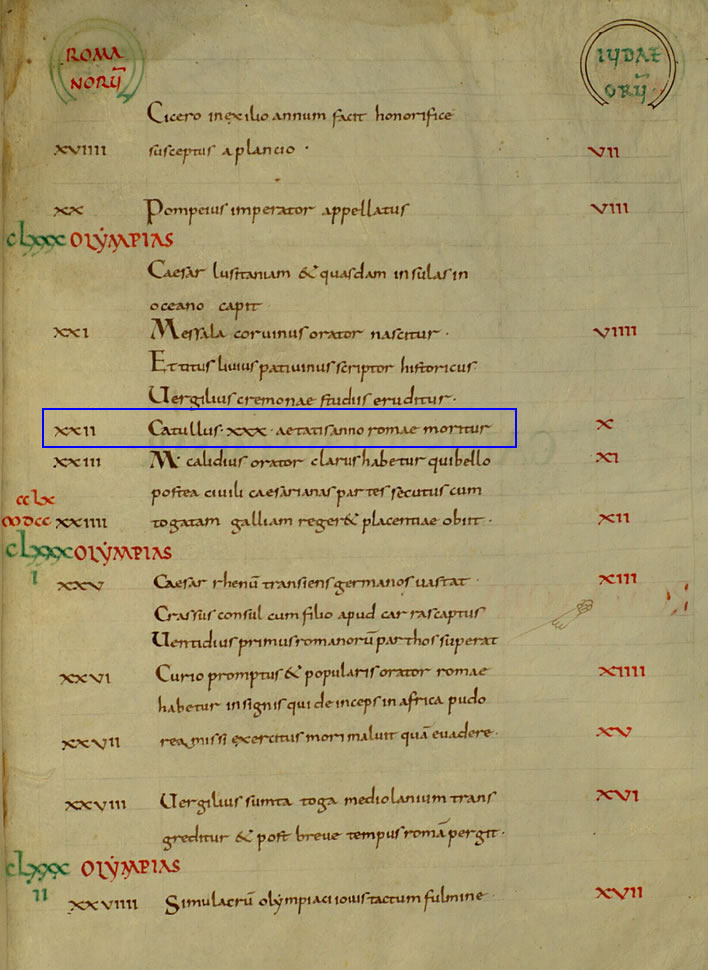 ROMA IYDAE
NORUM ORUM
Cicero inexilio annum facit honorifice
XVIIII susceptus aplancio · VII
XX Pompeius imperator appellatus VIII
CLXXX OLYMPIAS
Caesar lusitaniam & quasdam insulas in
oceano capit
XXI Messala corvinus orator nascitur · VIIII
Et titus livius patavinus scriptor historicus
Uergilius cremonae studiis eruditur ·
XXII Catullus · XXX · aetatis anno romae moritur X
XXIII M calidius orator clarus habetur qui bello XI
postea civili caesarianas partes secutus cum
CCLX
MDCC XXIIII togatam galliam reger& placentiae obiit · XII
CLXXX OLYMPIAS
I XXV Caesar rhenū transiens germanos uastat · XIII
Crassus consul cum filio apud carras captus
Uentidius primus romanorū parthos superat
XXVI Curio promptus & popularis orator romae XIIII
habetur insignis qui deinceps in africa pudo
XXVII re amissi exercitus mori maluit quā evadere · XV
XXVIII Uergilius sumta toga mediolanium trans XVI
greditur & post breve tempus romā pergit ·
CLXXX OLYMPIAS
II XXVIIII Simulacrū olympiaci iovis tactum fulmine XVII